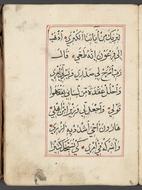 لِنُرِيَكَ مِنْ اٰيَاتِنَا الْكُبْرٰى اِذْهَبْ
اِلٰى فِرْعَوْنَ اِنَّهُ طَغٰى قَالَ
رَبِّ اشْرَحْ لِي صَدْرِي وَيَسِّرْ لِي اَمْرِي
وَاحْلُلْ عُقْدَةً مِنْ لِسَانِي يَفْقَهُوا
قَوْلِي وَاجْعَلْ لِي وَزِيرًا مِنْ اَهْلِي
هَارُونَ اَخِي اشْدُدْ بِهِ اَزْرِي
وَاَشْرِكْهُ فِي اَمْرِي كَيْ نُسَبِّحَكَ كَثِيرًا